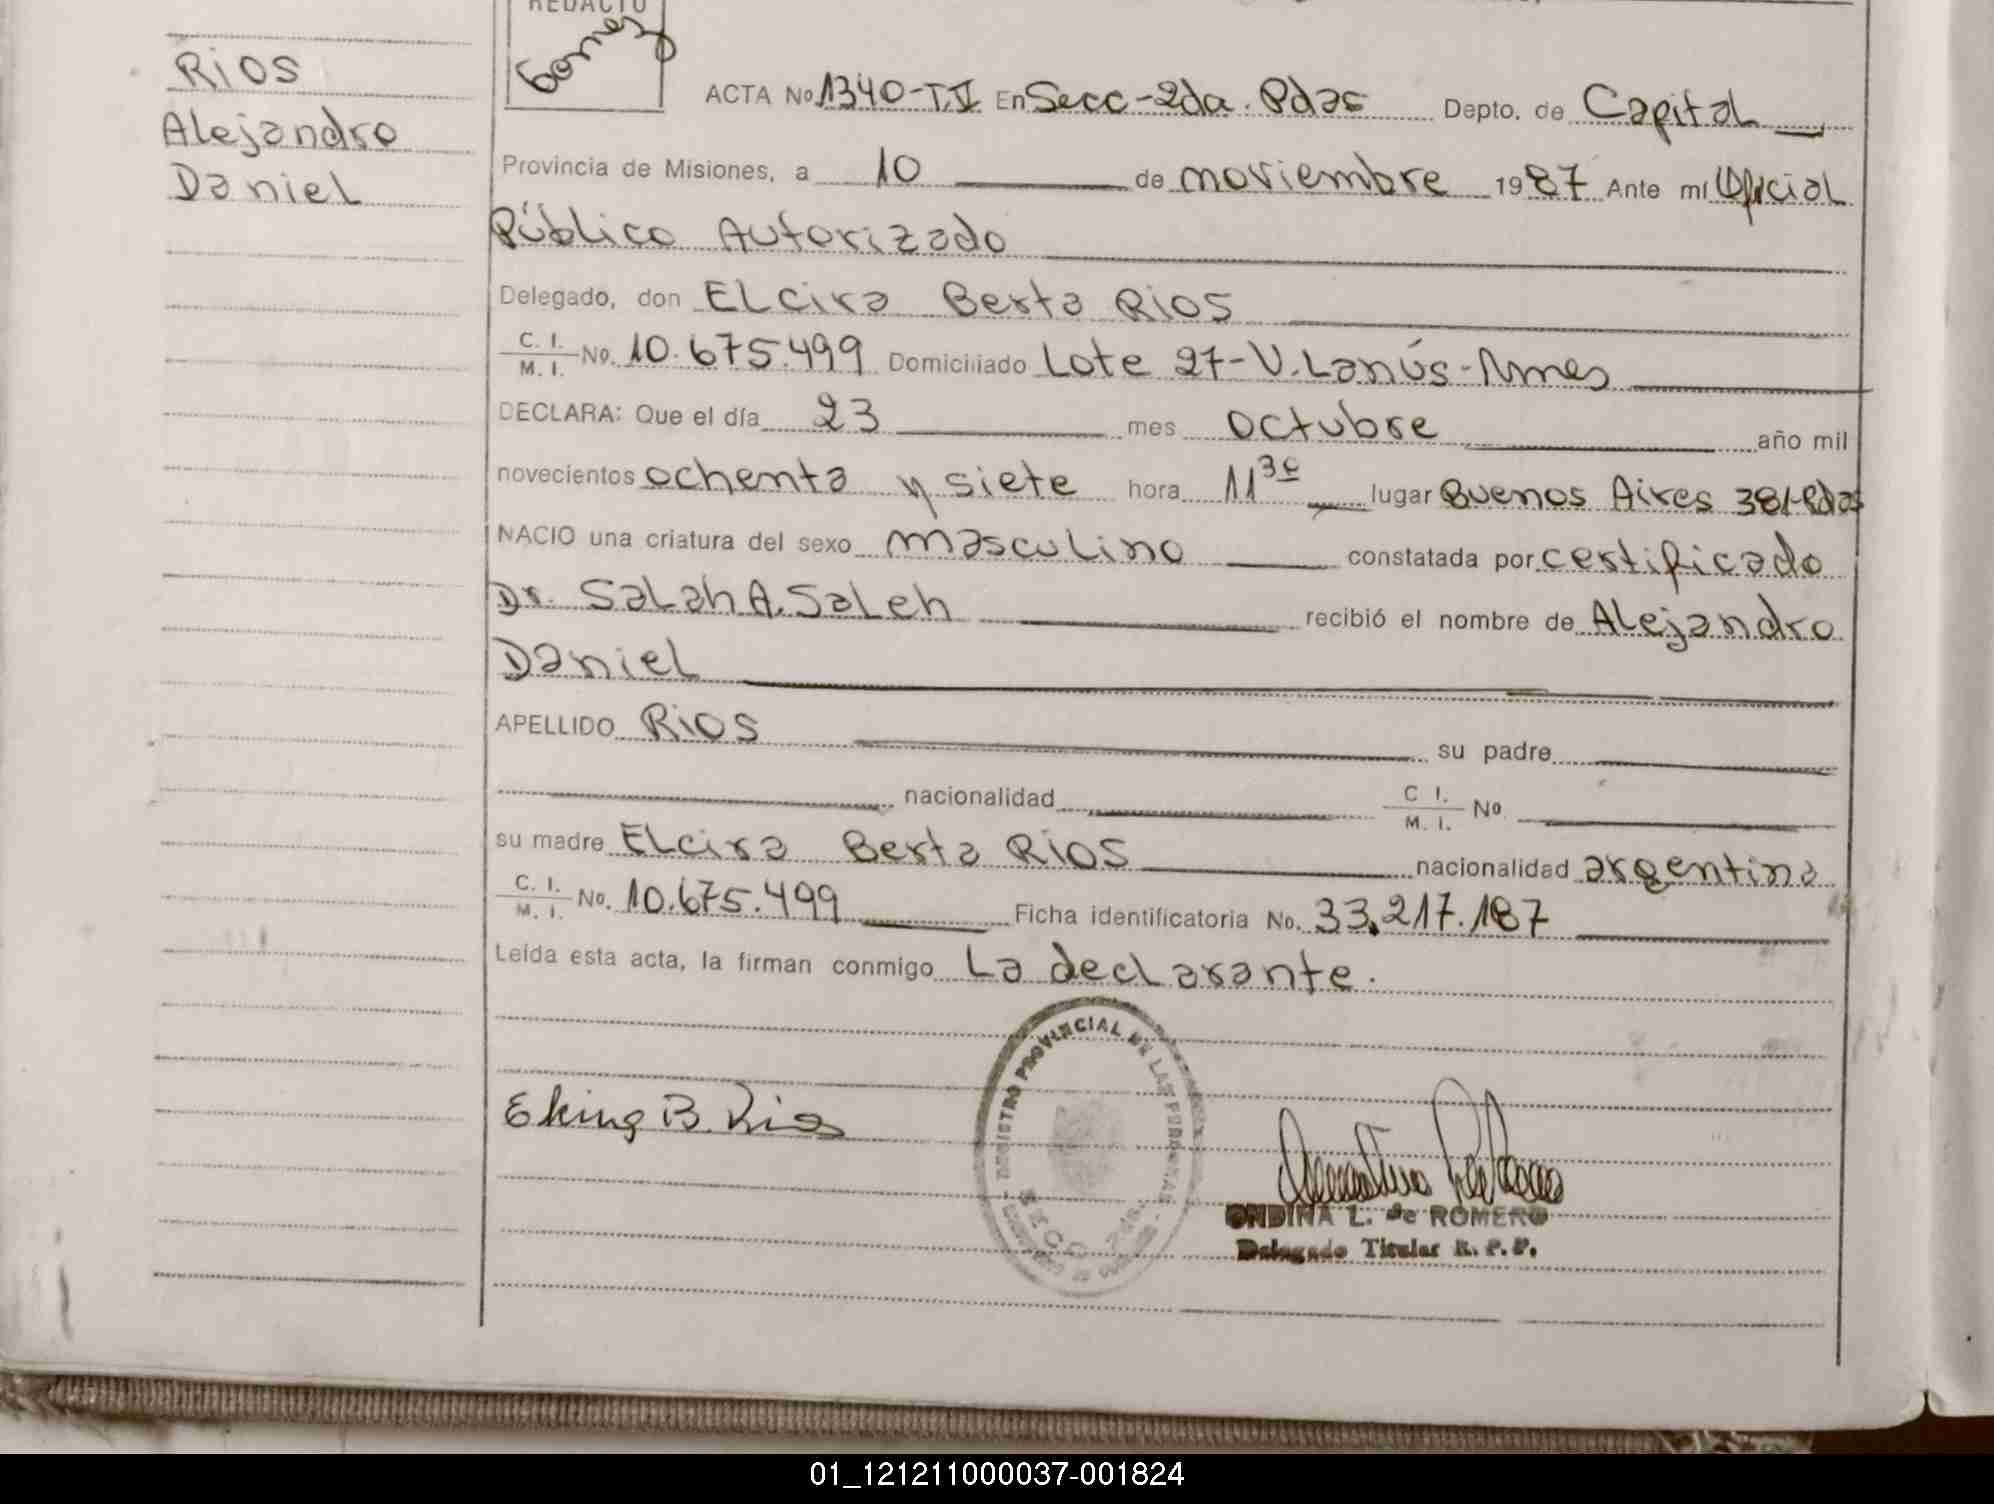 REDACTO
Gomez
Rios
Alejandro
Daniel
ACTA No 1340-T.V En Secc-2da. Pdas Depto. de Capital
Provincia de Misiones, a 10 de noviembre 1987 Ante mí Oficial
Público Autorizado
Delegado, don Elcira Berta Rios
C. I. / M. I. No. 10.675.499 Domiciliado Lote 27-V.Lanús-Mnes
DECLARA: Que el día 23 mes octubre año mil
novecientos ochenta y siete hora 11³⁰ lugar Buenos Aires 381-Pdas
NACIO una criatura del sexo masculino constatada por certificado
Dr. Salah A. Saleh recibió el nombre de Alejandro
Daniel
APELLIDO Rios su padre
nacionalidad C I. / M. I. No.
su madre Elcira Berta Rios nacionalidad argentina
C. I. / M. I. No. 10.675.499 Ficha identificatoria No. 33.217.187
Leída esta acta, la firman conmigo La declarante.
REGISTRO PROVINCIAL DE LAS PERSONAS
SECC. 2da.
B. Rios
ONDINA L. de ROMERO
Delegado Titular R. P. P.
01_121211000037-001824